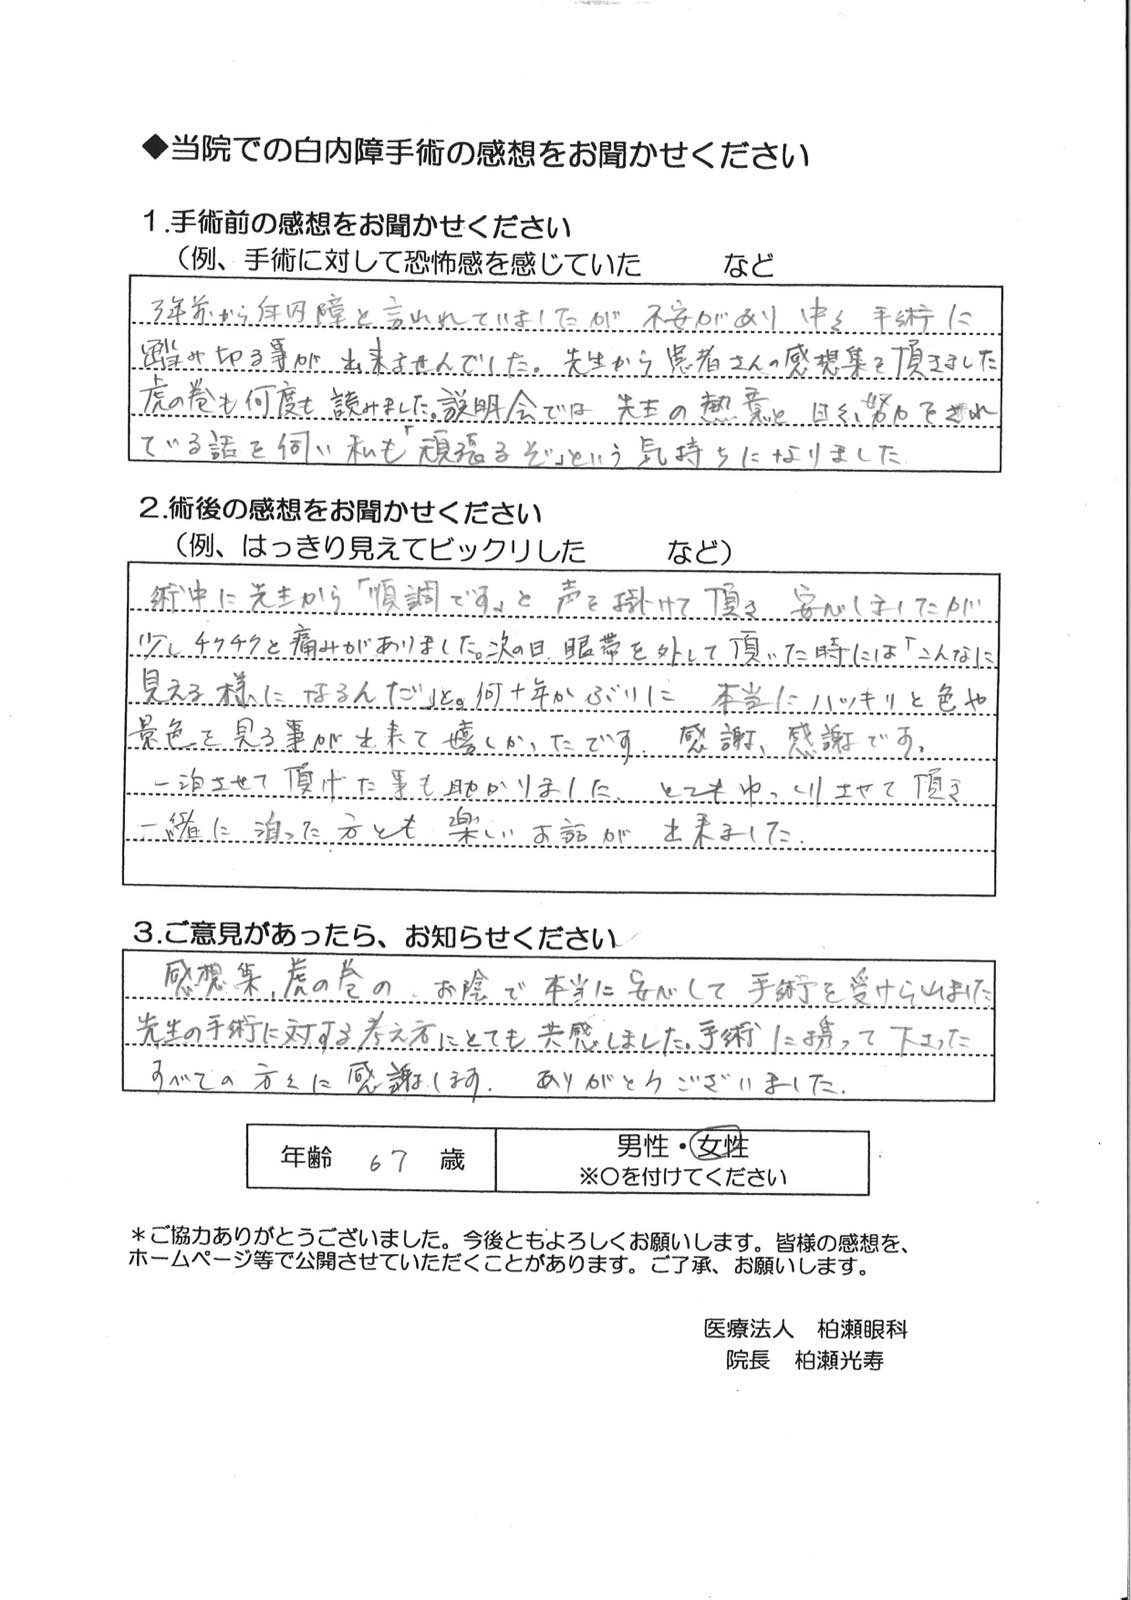 ◆当院での白内障手術の感想をお聞かせください
1.手術前の感想をお聞かせください
（例、手術に対して恐怖感を感じていた　　　など
3年前から白内障と言われていましたが 不安があり 中々 手術に
踏み切る事が 出来ませんでした。先生から患者さんの感想集を頂きました
虎の巻も何度も読みました。説明会では 先生の熱意と 日々、努力をされ
ている話を伺い 私も「頑張るぞ」という気持ちになりました
2.術後の感想をお聞かせください
（例、はっきり見えてビックリした　　　など）
術中に先生から「順調です」と 声を掛けて頂き 安心しましたが
少しチクチクと痛みがありました。次の日 眼帯を外して頂いた時には「こんなに
見える様になるんだ」と。何十年かぶりに 本当にハッキリと色や
景色を見る事が出来て嬉しかったです. 感謝、感謝です。
一泊させて頂けた事も助かりました. とてもゆっくりさせて頂き
一緒に泊った方とも 楽しいお話が 出来ました.
3.ご意見があったら、お知らせください
感想集, 虎の巻の お陰で本当に安心して 手術を受けられました
先生の手術に対する考え方にとても共感しました。手術に携って下さった
すべての方々に感謝します. ありがとうございました.
年齢 67 歳
男性・女性
※○を付けてください
＊ご協力ありがとうございました。今後ともよろしくお願いします。皆様の感想を、
ホームページ等で公開させていただくことがあります。ご了承、お願いします。
医療法人　柏瀬眼科
院長　柏瀬光寿